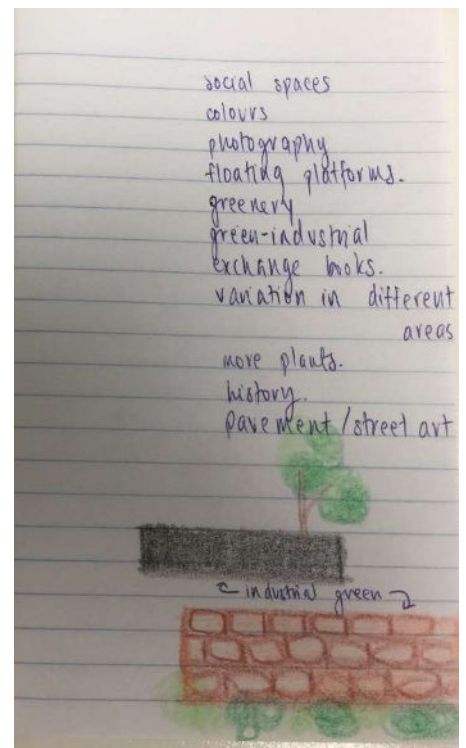 social spaces
colours
photography
floating platforms.
greenery
green-industrial
exchange books.
variation in different
areas
more plants.
history.
pavement / street art
industrial green